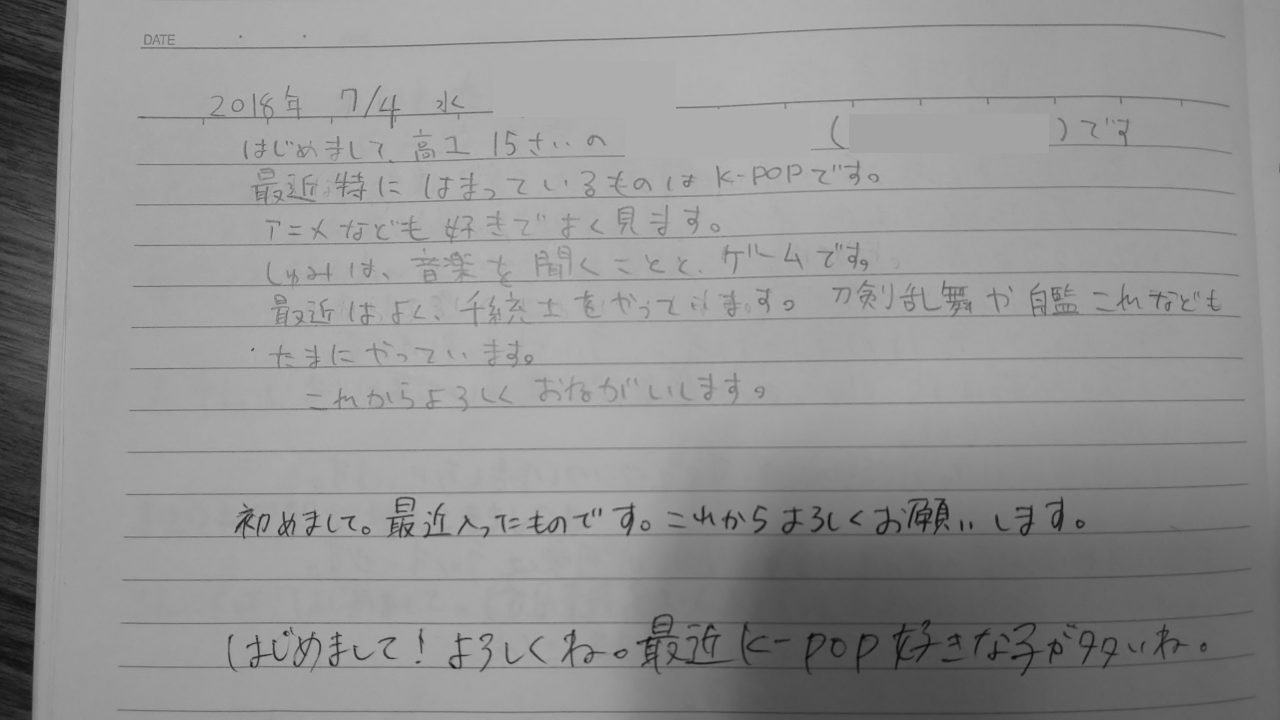 DATE
2018年 7/4 水
はじめまして、高1 15さいの ( )です
最近、特にはまっているものはK-POPです。
アニメなども好きでよく見ます。
しゅみは、音楽を聞くことと、ゲームです。
最近はよく、千銃士をやっています。刀剣乱舞や艦これなども
たまにやっています。
これからよろしくおねがいします。
初めまして。最近入ったものです。これからよろしくお願いします。
はじめまして!よろしくね。最近K-pop好きな子が多いね。